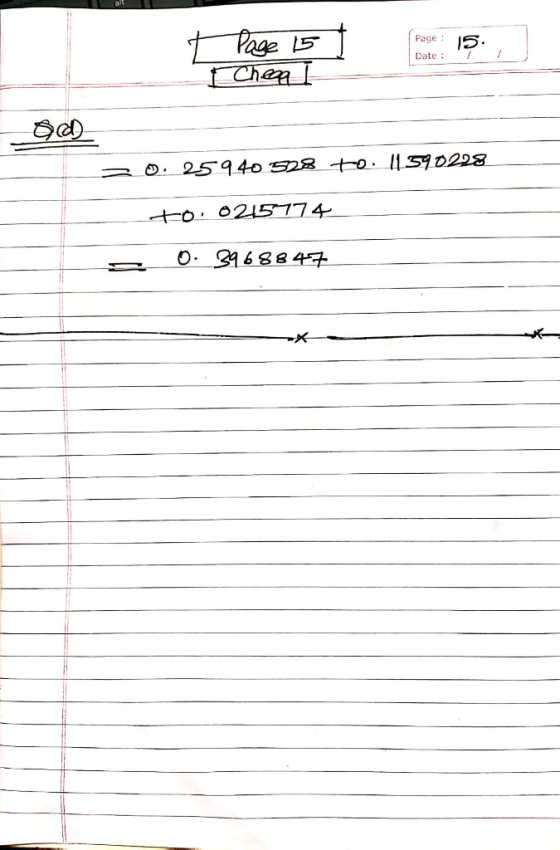 Page 15
Page : 15.
Date : / /
Chegg
Q(d)
= 0. 25940528 + 0. 11590228
+ 0. 0215774
= 0. 3968847